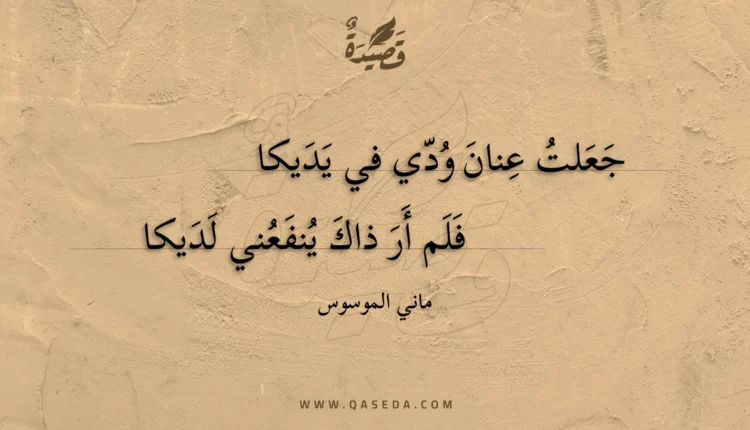 قَصِيدَةٌ
جَعَلتُ عِنانَ وُدّي في يَدَيكا
فَلَم أَرَ ذاكَ يُنفَعُني لَدَيكا
ماني الموسوس
WWW.QASEDA.COM